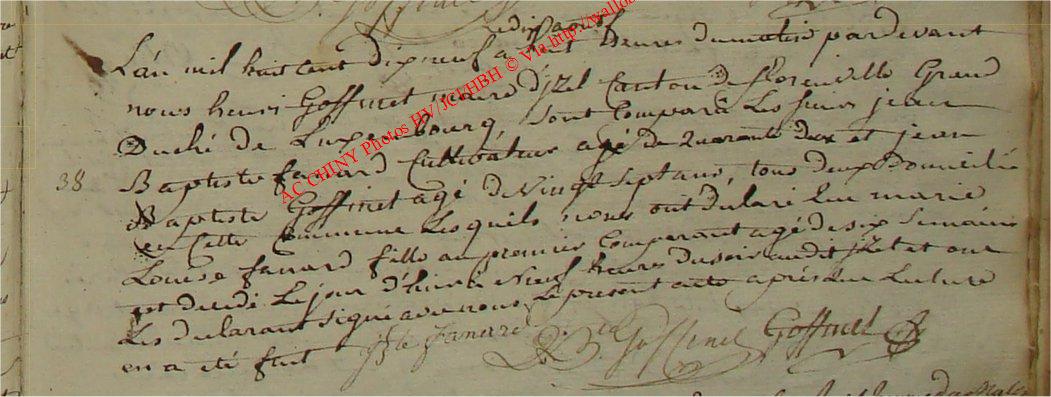 le dix aoust
L'an mil huit cent dixneuf a huit heures du matin pardevant
nous henri Goffinet maire d'jzel Canton de florenville Grand
Duché de Luxembourg, sont Comparû Les sieurs jean
38 Baptiste fanard Cultivateur agé de Quarante deux et jean
Baptiste Goffinet agé de Vingt Sept ans, tous deux domicilié
en Cette Commune Lesquels nous ont déclaré que marie
Louise fanard fille au premier Comparant agé de six Semaines
est décédé Le jour d'hier à Neuf heures du soir audit jzel et ont
Les declarant signé avec nous Le présent acte après que Lecture
en a été fait
fanard
Goffinet Goffinet
AC CHINY Photos HV/JCL/HBH © Via http://wallo